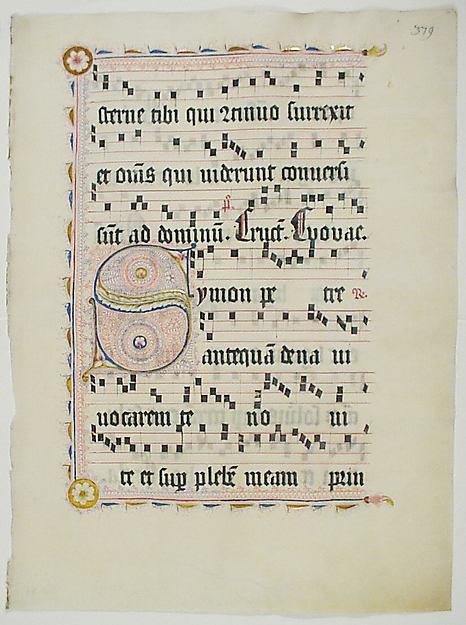 379
sterne tibi qui ꝯtinuo surrexit
et oms qui uiderunt conuersi
sūt ad dominū. Cruct. Euouae.
Symon pe tre ℟.
antequā de na ui
uocarem te no ui
te et sup plebē meam prin